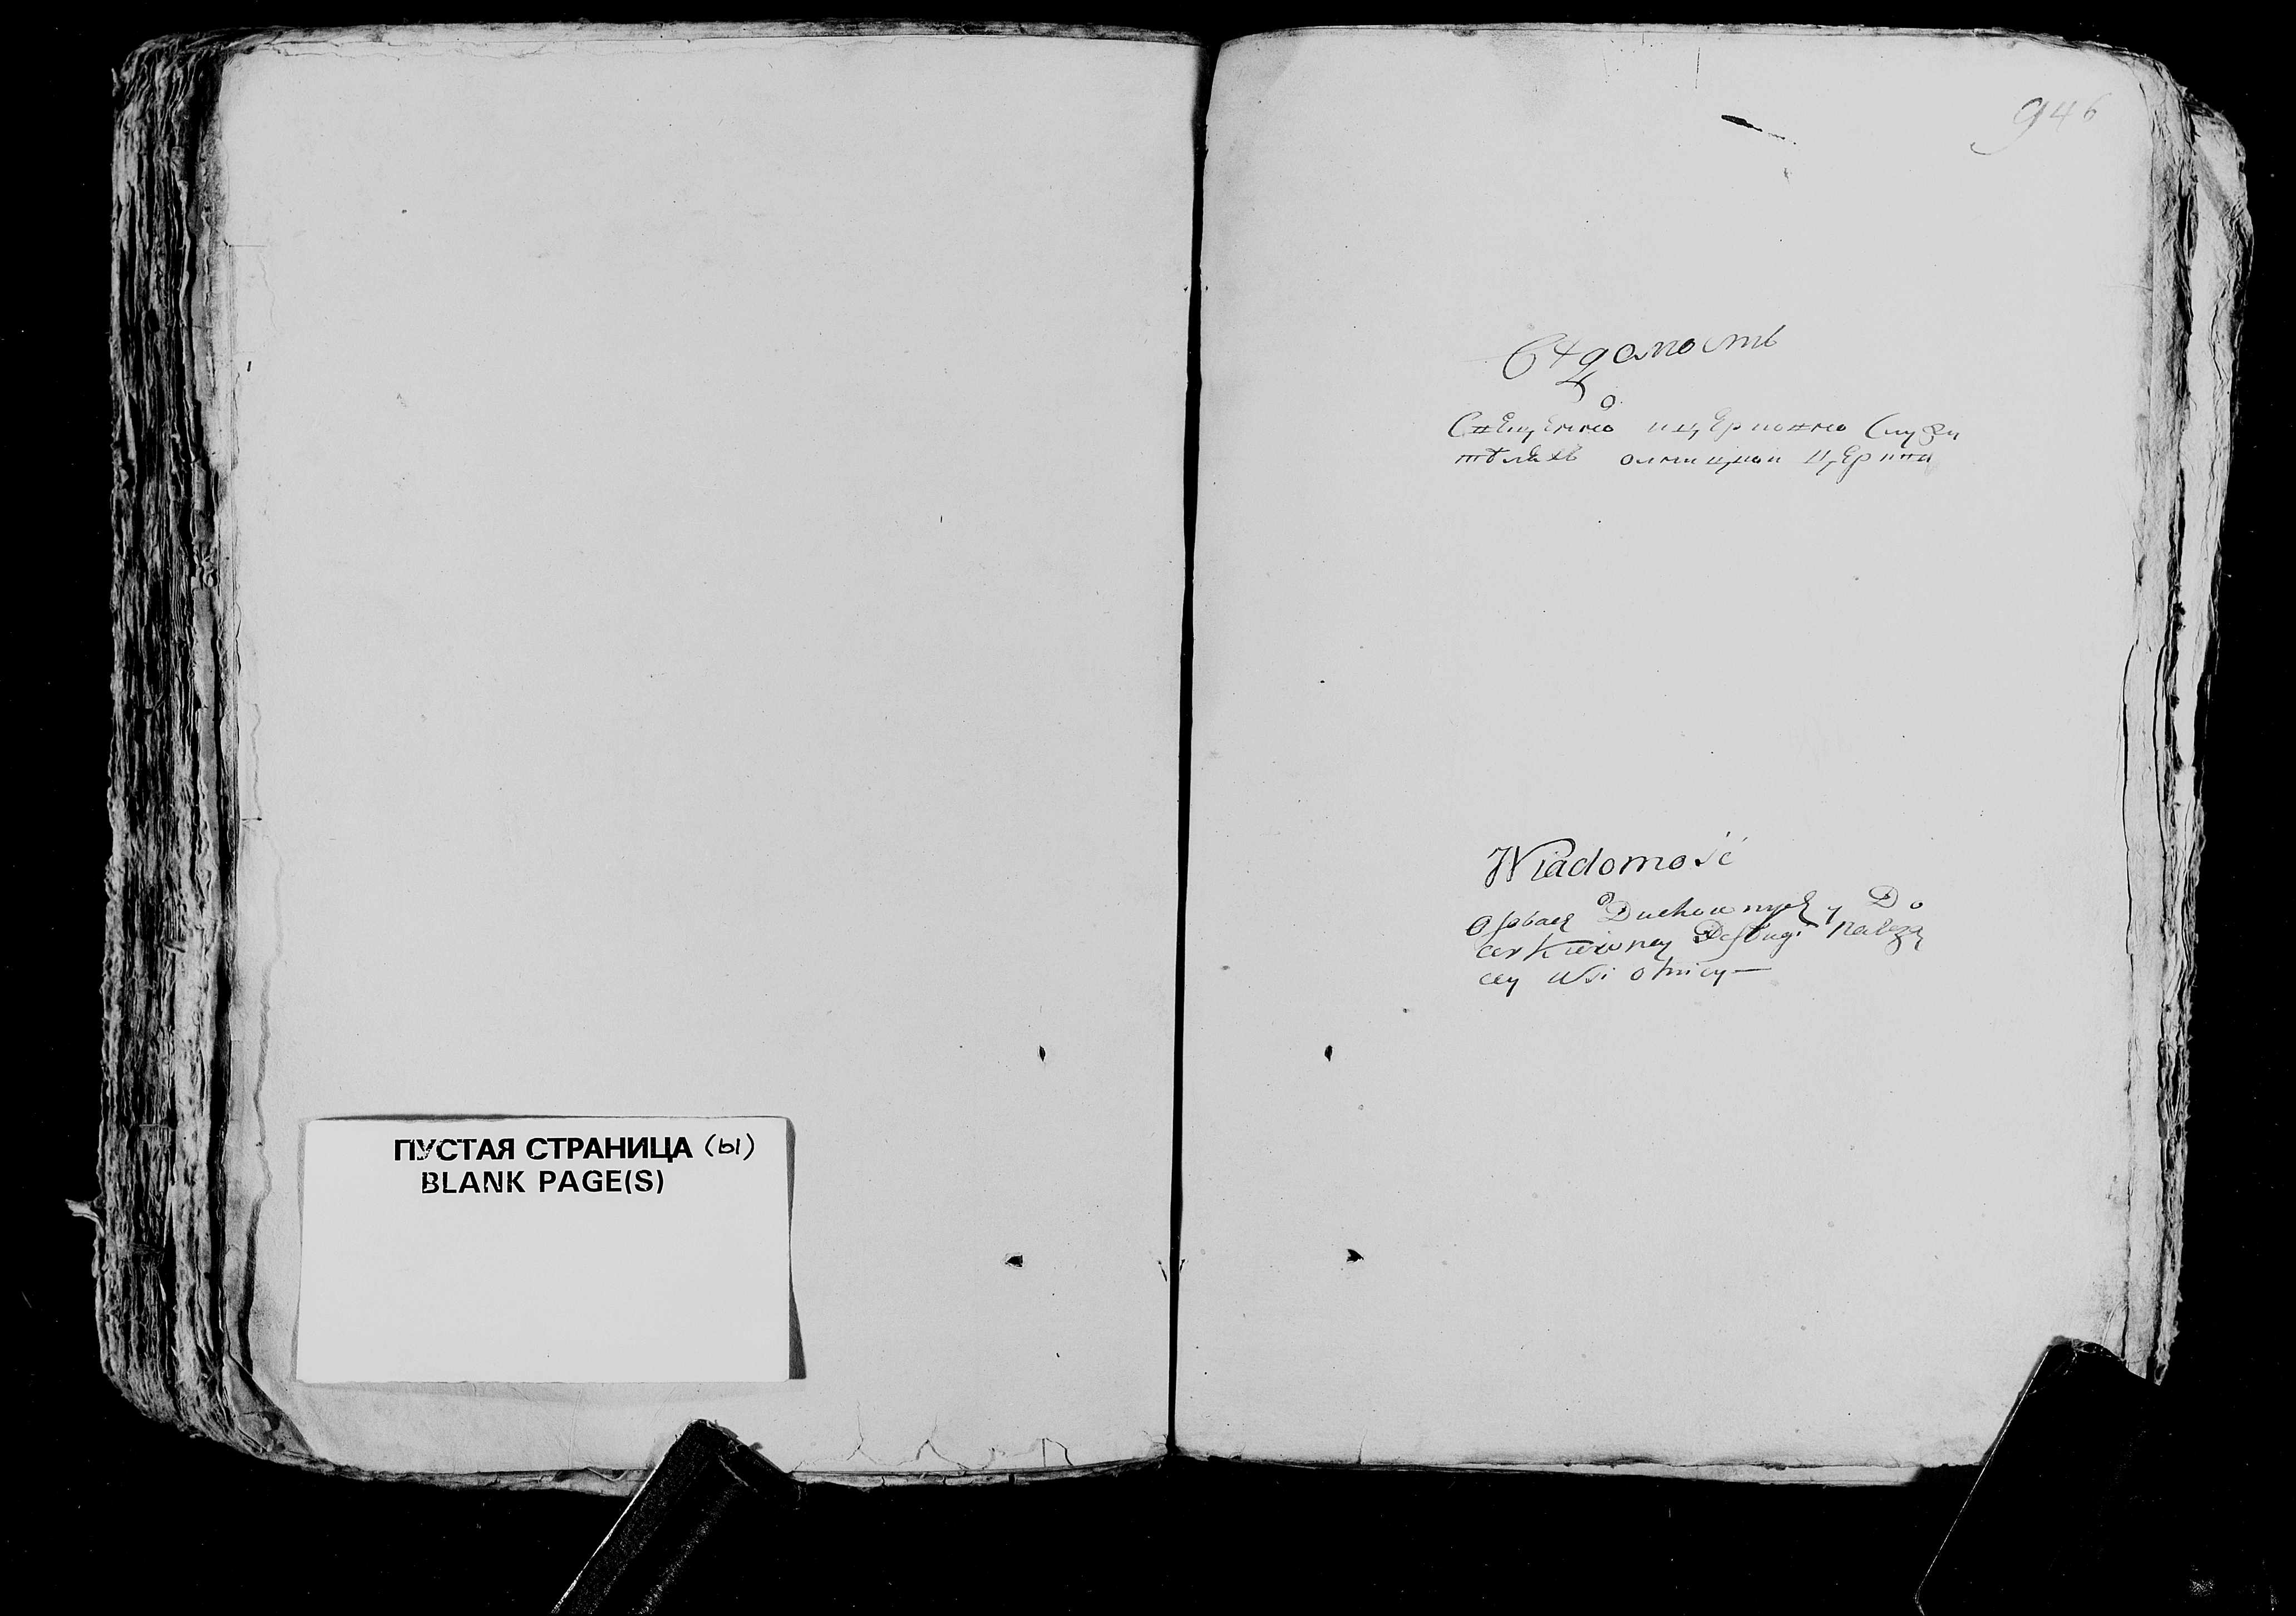 ПУСТАЯ СТРАНИЦА (ы)
BLANK PAGE(S)
946
Вѣдомость
о
Священно и церковно служи
телехъ олницкои церкви
Wiadomość
o
Osobach Duchownych y Do
cerkiewney Posługi należą
cey wsi olnicy